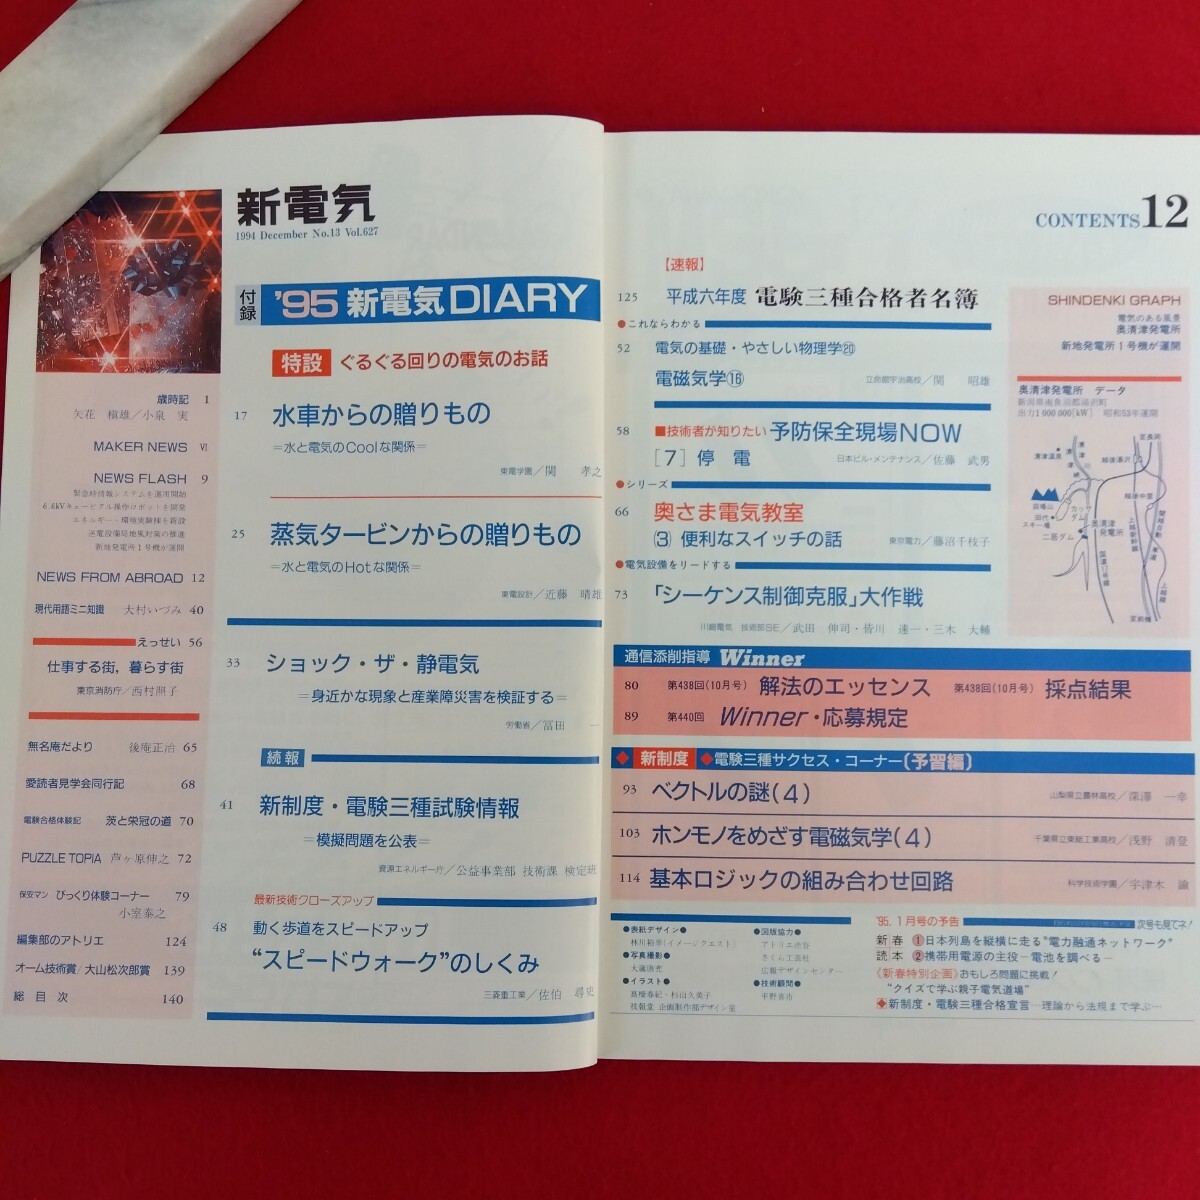 新電気
1994 December No.13 Vol.627
付録
'95 新電気 DIARY
特設 ぐるぐる回りの電気のお話
17 水車からの贈りもの
=水と電気のCoolな関係=
東電学園/関 孝之
25 蒸気タービンからの贈りもの
=水と電気のHotな関係=
東電設計/近藤 晴雄
33 ショック・ザ・静電気
=身近かな現象と産業障災害を検証する=
労働省/冨田 一
続報
41 新制度・電験三種試験情報
=模擬問題を公表=
資源エネルギー庁/公益事業部 技術課 検定班
最新技術クローズアップ
48 動く歩道をスピードアップ
“スピードウォーク”のしくみ
三菱重工業/佐伯 尋史
歳時記 1
矢花 槇雄/小泉 実
MAKER NEWS Ⅵ
NEWS FLASH 9
緊急時情報システムを運用開始
6.6kVキュービクル操作ロボットを開発
エネルギー・環境実験棟を新設
送電設備局地風対策の推進
新地発電所1号機が運開
NEWS FROM ABROAD 12
現代用語ミニ知識 大村いづみ 40
えっせい 56
仕事する街，暮らす街
東京消防庁/西村照子
無名庵だより 後庵正治 65
愛読者見学会同行記 68
電験合格体験記 茨と栄冠の道 70
PUZZLE TOPIA 芦ヶ原伸之 72
保安マン びっくり体験コーナー 79
小室泰之
編集部のアトリエ 124
オーム技術賞/大山松次郎賞 139
総目次 140
CONTENTS 12
【速報】
125 平成六年度 電験三種合格者名簿
●これならわかる
52 電気の基礎・やさしい物理学⑳
電磁気学⑯ 立命館宇治高校/関 昭雄
58 ■技術者が知りたい 予防保全現場NOW
[7] 停 電 日本ビル・メンテナンス/佐藤 武男
●シリーズ
66 奥さま電気教室
(3) 便利なスイッチの話 東京電力/藤沼千枝子
●電気設備をリードする
73 「シーケンス制御克服」大作戦
川崎電気 技術部SE/武田 伸司・皆川 速一・三木 大輔
通信添削指導 Winner
80 第438回(10月号) 解法のエッセンス 第438回(10月号) 採点結果
89 第440回 Winner・応募規定
◆新制度◆電験三種サクセス・コーナー〔予習編〕
93 ベクトルの謎(4) 山梨県立農林高校/深澤 一幸
103 ホンモノをめざす電磁気学(4) 千葉県立東総工業高校/浅野 清登
114 基本ロジックの組み合わせ回路 科学技術学園/宇津木 諭
SHINDENKI GRAPH
電気のある風景
奥清津発電所
新地発電所1号機が運開
奥清津発電所 データ
新潟県南魚沼郡湯沢町
出力1 000 000[kW] 昭和53年運開
至長岡
清津温泉
越後湯沢
清津川
苗場山
カッサダム
越後中里
田代スキー場
奥清津発電所
二居ダム
上越新幹線
関越自動車道
国道17号線
上越線
至前橋
●表紙デザイン●
林川裕幸(イメージクエスト)
●写真撮影●
●イラスト●
高橋春紀・杉山久美子
技報堂 企画制作部デザイン室
●図版協力●
アトリエ渋谷
さくら工芸社
広報デザインセンター
●技術顧問●
平野喜市
'95. 1月号の予告 次号も見てネ!
新春読本 ①日本列島を縦横に走る“電力融通ネットワーク”
②携帯用電源の主役－電池を調べる－
〈新春特別企画〉おもしろ問題に挑戦!
“クイズで学ぶ親子電気道場”
◆新制度・電験三種合格宣言…理論から法規まで学ぶ…